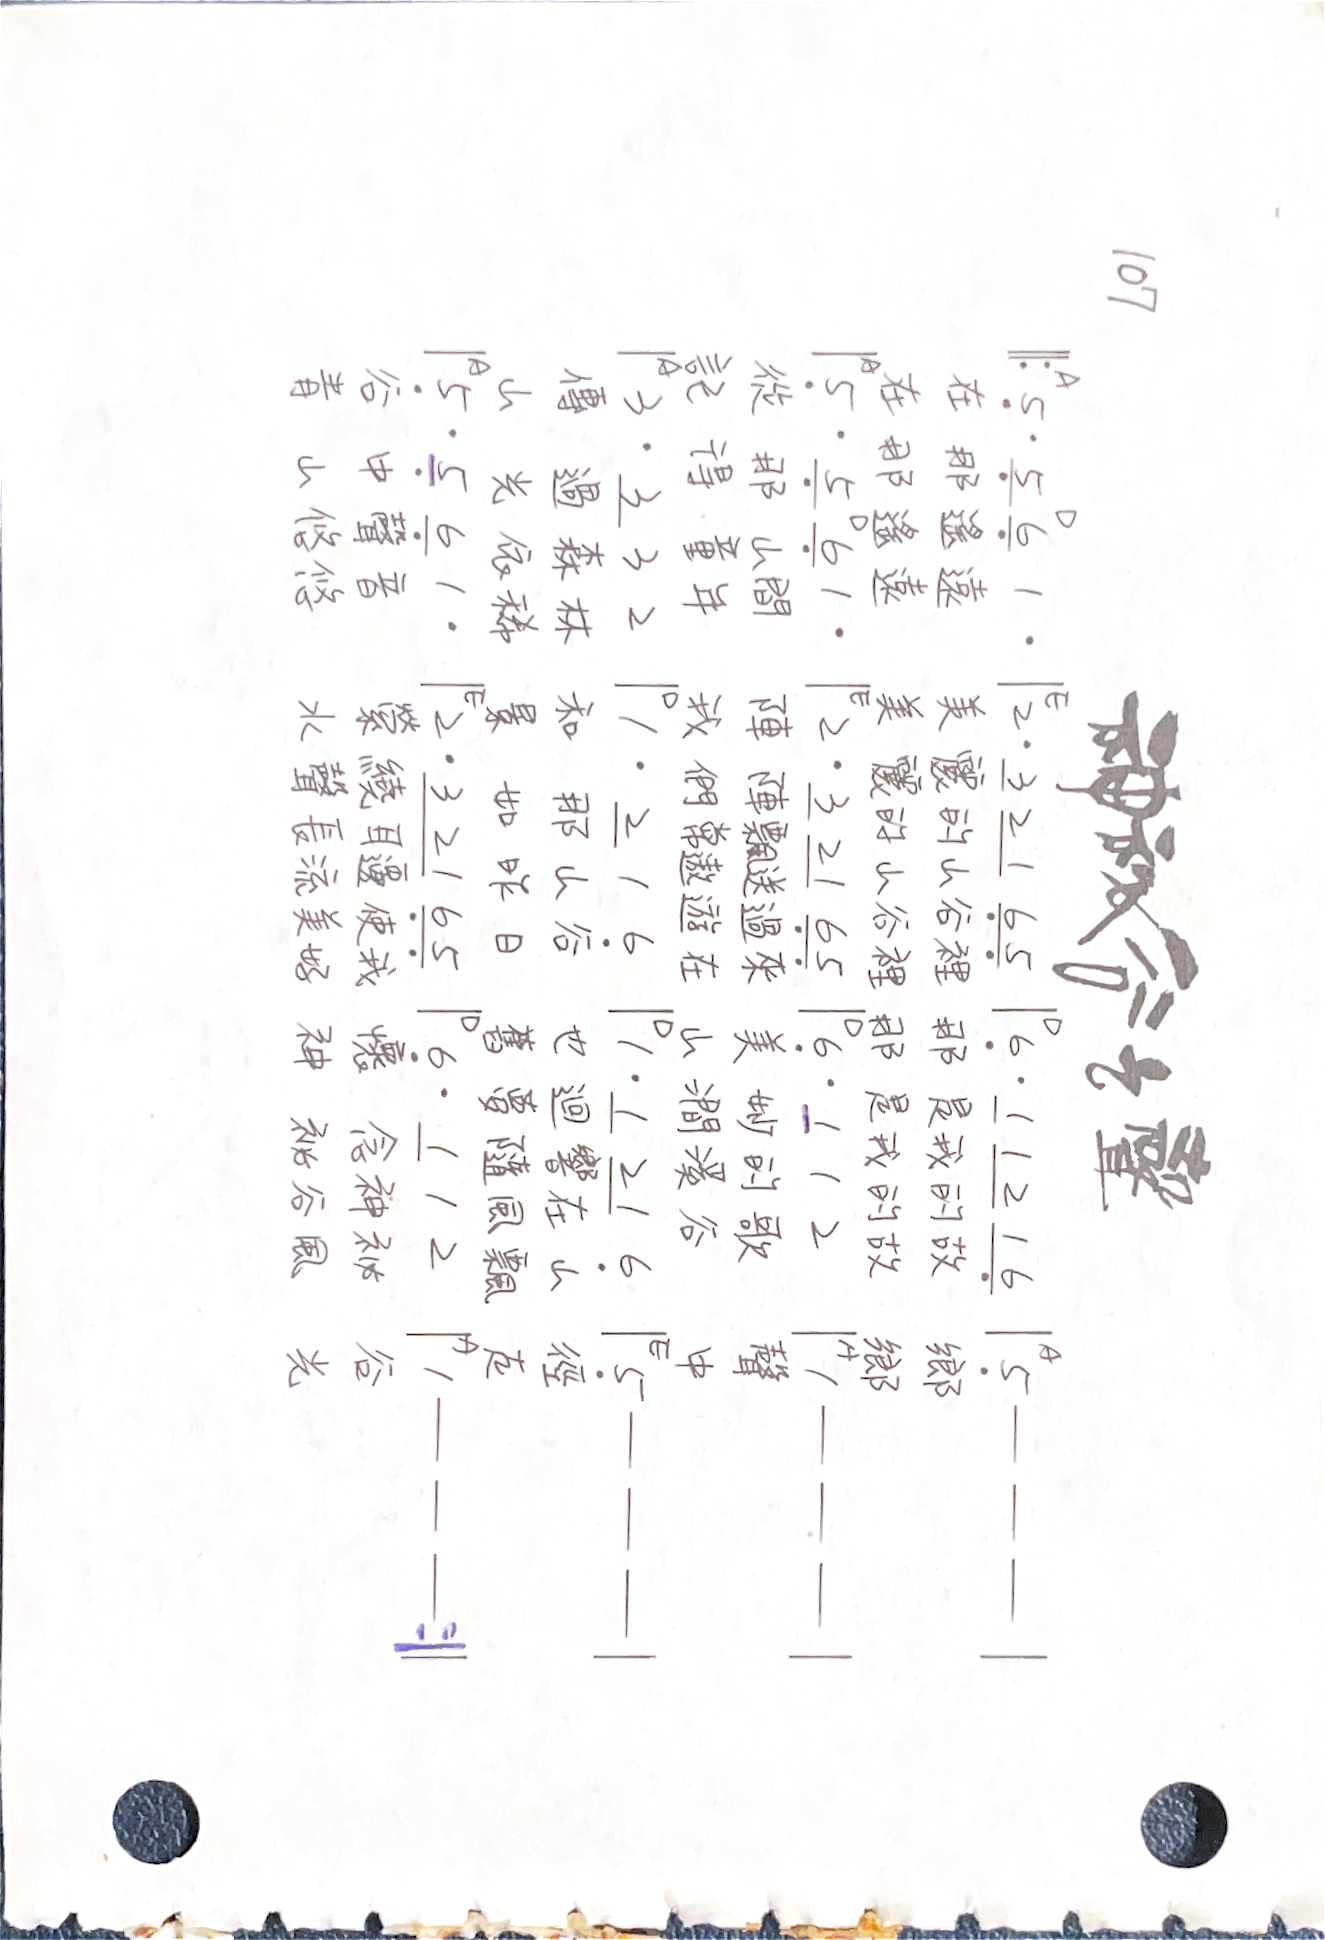 107
神祕谷之聲
A D E D A
‖: 5̣ · 5̣ 6̣ 1 · | 2 · 3 2 1 6̣ 5̣ | 6̣ · 1 1 2 1 6̣ | 5̣ — — — |
在那遙遠 美麗的山谷裡 那是我的故 鄉
在那遙遠 美麗的山谷裡 那是我的故 鄉
A D E D A
| 5̣ · 5̣ 6̣ 1 · | 2 · 3 2 1 6̣ 5̣ | 6̣ · 1 1 2 | 1 — — — |
從那山間 陣陣飄送過來 美妙的歌 聲
記得童年 我們常遨遊在 山澗溪谷 中
A D D E
| 3 · 3 3 2 | 1 · 2 1 6̣ | 1 · 1 2 1 6̣ | 5̣ — — — |
傳過森林 和那山谷 也迴響在山 徑
山光依稀 景如昨日 舊夢隨風飄 走
A E D A
| 5̣ · 5̣ 6̣ 1 · | 2 · 3 2 1 6̣ 5̣ | 6̣ · 1 1 2 | 1 — — — :‖
谷中聲音 縈繞耳邊使我 懷念神祕 谷
青山悠悠 水聲長流美好 神祕谷風 光